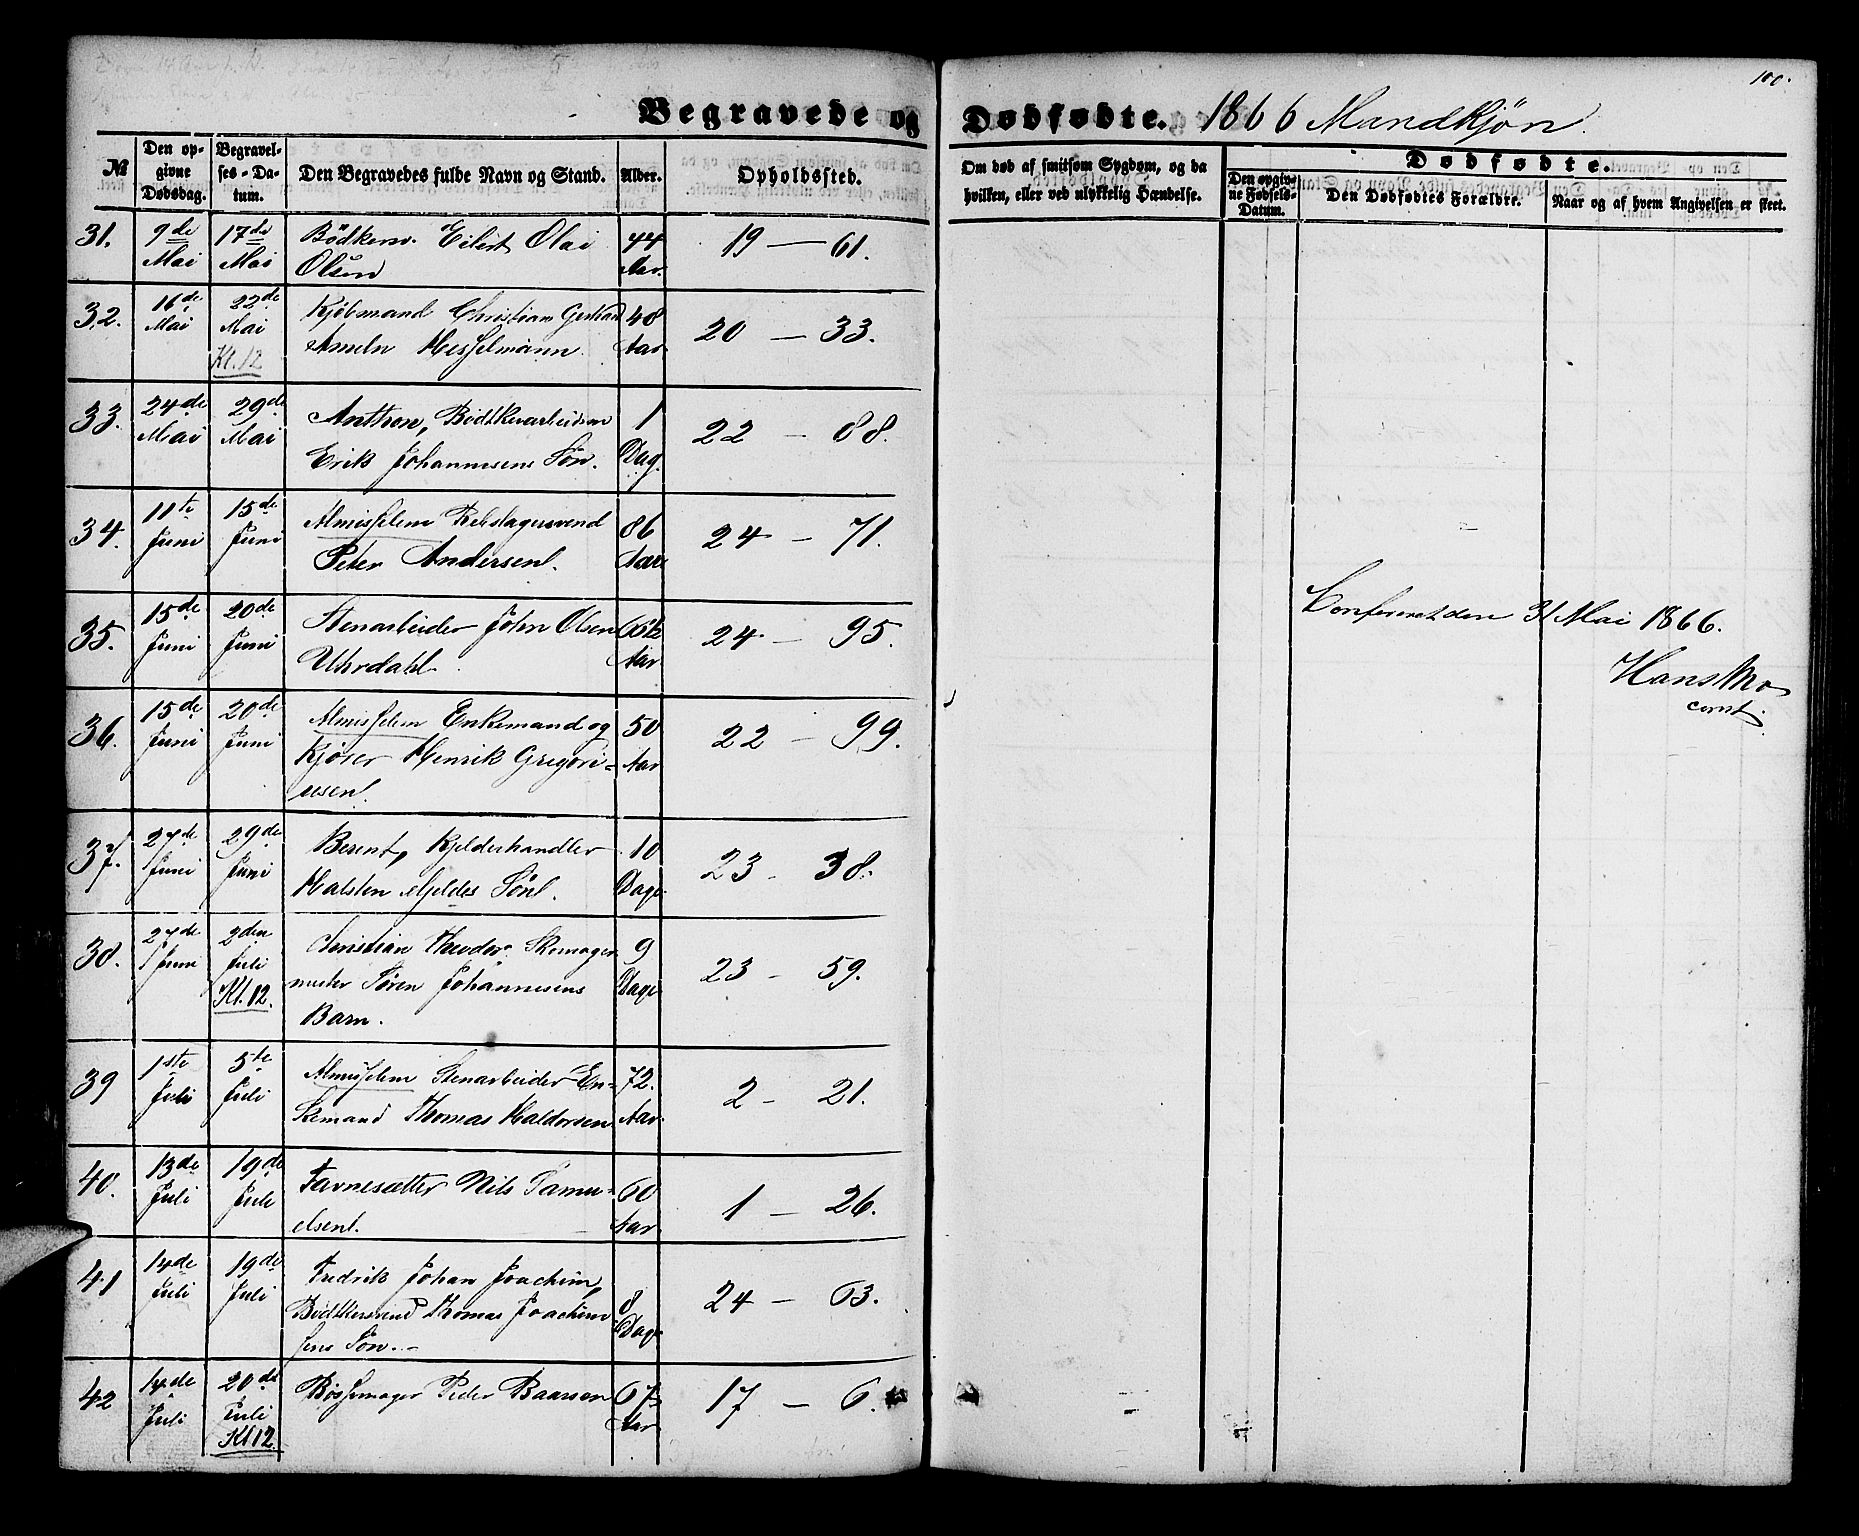 100.
Begravede og Dødfødte. 1866 Mandkjøn.
№
Den opgivne Dødsdag.
Begravelses-Datum.
Den Begravedes fulde Navn og Stand.
Alder.
Opholdssted.
Om død af smitsom Sygdom, og da hvilken, eller ved ulykkelig Hændelse.
Dødfødte.
Den opgivne Fødsels-Datum.
Den Dødfødtes Forældre.
Naar og af hvem Angivelsen er skeet.
31. 9de Mai 17de Mai Bødkersv. Eilert Olai Olsen 44 Aar. 19 — 61.
32. 16de Mai 22de Mai Kl. 12 Kjøbmand Christian Gerhard Ameln Hesselmann. 48 Aar. 20 — 33.
33. 24de Mai 29de Mai Anthon, Bødtkerarbeider Erik Johannesens Søn. 1 Dag. 22 — 88.
34. 11te Juni 15de Juni Almisselem Rebslagersvend Peter Andersen. 86 Aar. 24 — 71.
35. 15de Juni 20de Juni Stenarbeider John Olsen Uhrdahl. Aar 24 — 95.
36. 15de Juni 20de Juni Almisselem Enkemand og Kjører Henrik Gregoriusen. 50 Aar 22 — 99.
37. 27de Juni 29de Juni Berent, Kjelderhandler Halsten Mjeldes Søn. 10 Dage 23 — 38.
38. 27de Juni 2den Juli Kl. 12. Christian Theodor. Skomagermester Søren Johannesens Barn. 9 Dage 23 — 59.
39 1ste Juli 5te Juli Almisselem Stenarbeider Enkemand Thomas Haldorsen 72. Aar. 2 — 21.
40. 13de Juli 19de Juli Farvesætter Nils Samuelsen. 60 Aar. 1 — 26.
41 14de Juli 19de Juli Fredrik Johan Joachim, Bødtkersvend Thomas Joachimsens Søn. 8 Dage 24 — 63.
42 14de Juli 20de Juli Kl 12 Bøssemager Peder Baarsen 67 Aar 17 — 6.
Confereret den 31 Mai 1866.
Hans Mo
const.